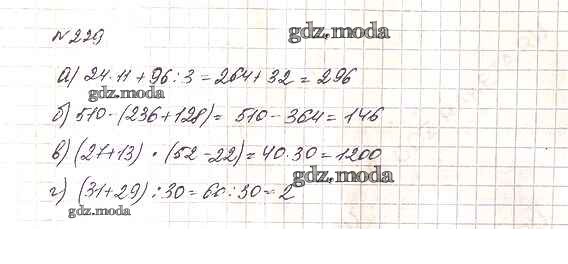 №229
gdz.moda
а) 24·11 + 96 : 3 = 264 + 32 = 296
gdz.moda
б) 510 - (236 + 128) = 510 - 364 = 146
в) (27+13) · (52 - 22) = 40·30 = 1200
gdz.moda
г) (31+29) : 30 = 60 : 30 = 2
gdz.moda